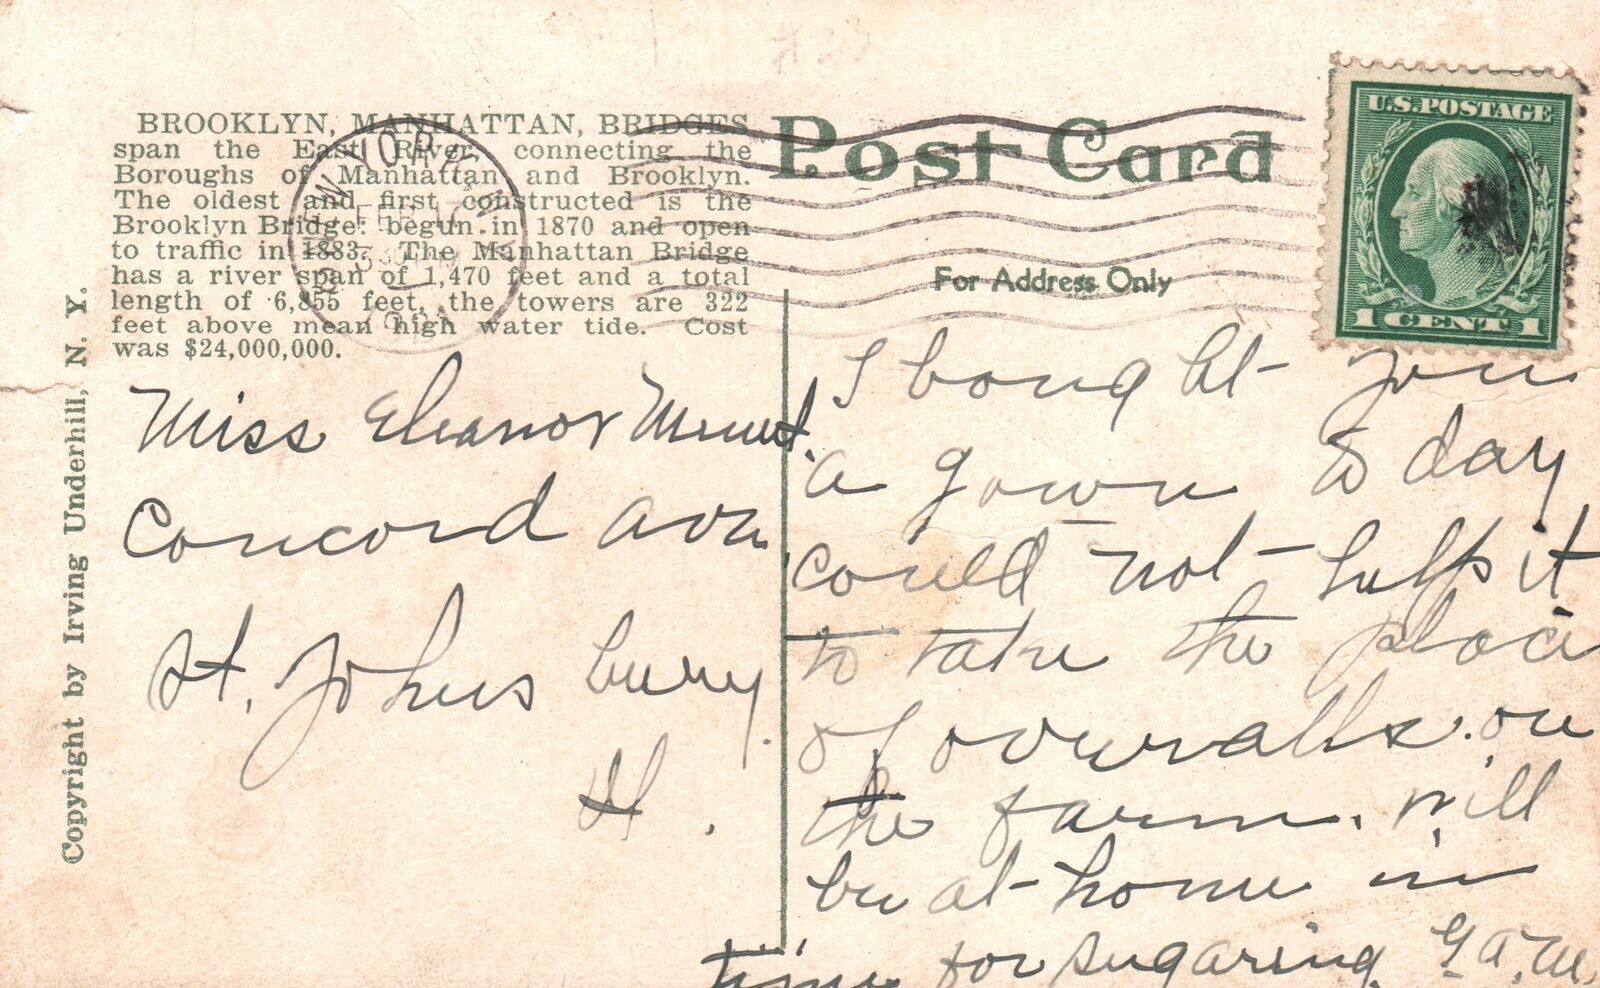 BROOKLYN, MANHATTAN, BRIDGES
span the East River, connecting the
Boroughs of Manhattan and Brooklyn.
The oldest and first constructed is the
Brooklyn Bridge: begun in 1870 and open
to traffic in 1883. The Manhattan Bridge
has a river span of 1,470 feet and a total
length of 6,855 feet, the towers are 322
feet above mean high water tide. Cost
was $24,000,000.
Copyright by Irving Underhill, N. Y.
Post Card
For Address Only
U.S. POSTAGE
1 CENT 1
YORK
FEB
Miss Eleanor
Concord Ave
St. Johnsbury
I bought you
a gown to day
could not help it
to take the place
of overalls on
the farm. Will
be at home in
time for sugaring. G.A.M.